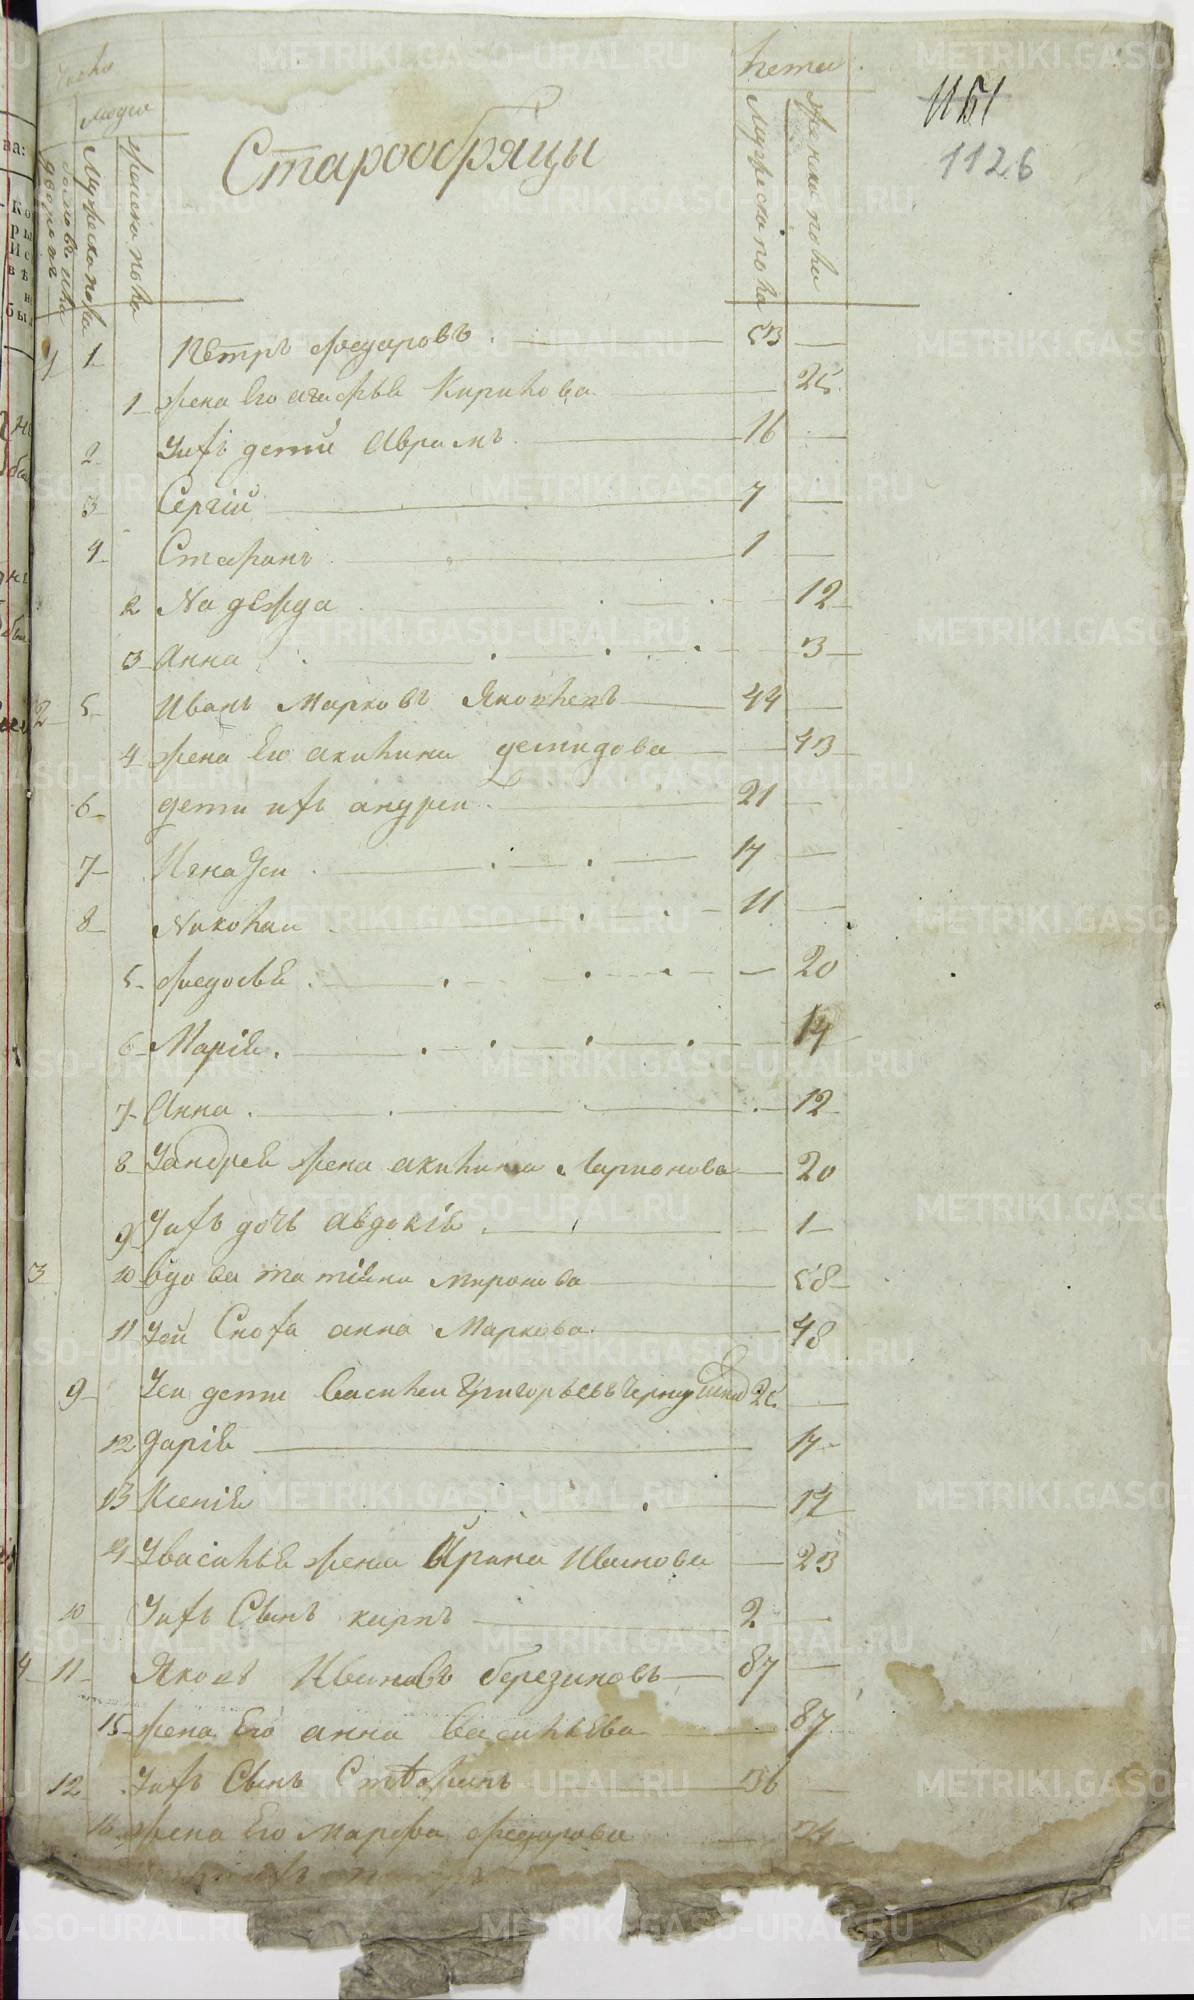 Число
людей
Лета
дворовъ
Мужеска пола
женска пола
Старообрядцы
Мужеска пола
женска пола
1151
1126
1 1 Пётръ Федоровъ 53
1 жена Его агафья Кирилова 25
2 Уихъ дети Аврамъ 16
3 Сергiй 7
4 Стефанъ 1
2 Надежда 12
3 Анна 3
2 5 Иванъ Марковъ Яковлевъ 44
4 жена Его акилина демидова 43
6 дети ихъ андреи 21
7 Игнатеи 17
8 Николаи 11
5 федосья 20
6 Марiя 14
7 Анна 12
8 Уандрея жена акилина Ларионова 20
9 Уихъ дочь авдокiя 1
3 10 вдова татiяна миронова 58
11 Уей Сноха анна Маркова 48
9 Уеи дети Василеи Григорьевъ 25
12 Дарiя 17
13 Ксенiя 14
14 Увасилья жена Ирина Иванова 23
10 Уихъ Сынъ карпъ 2
4 11 Яковъ Ивановъ березиновъ 87
15 жена Его анна Васильева 87
12 Уихъ Сынъ Стефанъ 36
16 жена Его Марфа федорова 34
METRIKI.GASO-URAL.RU